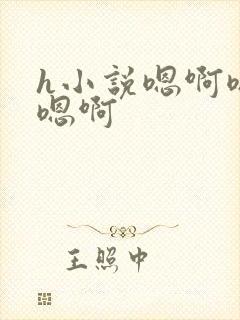 h小説嗯啊
嗯啊
王照中